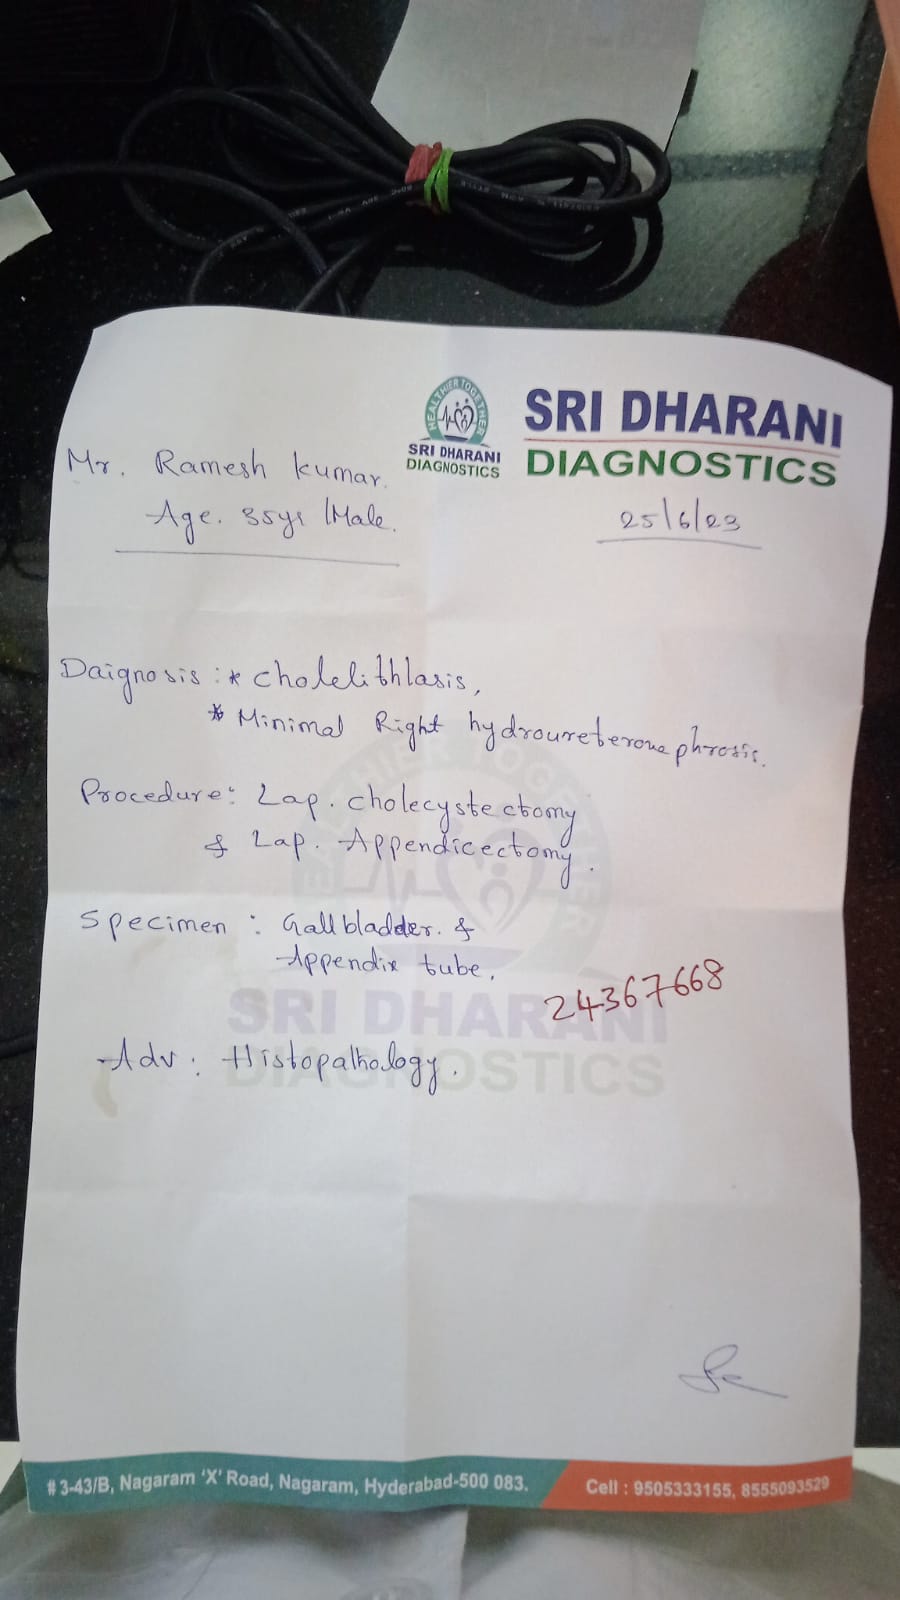 HEALTHIER TOGETHER
SRI DHARANI
DIAGNOSTICS
SRI DHARANI
DIAGNOSTICS
Mr. Ramesh Kumar.
Age. 35yr /Male.
25/6/23
Daignosis : * cholelithlasis,
* Minimal Right hydroureteronephrosis.
Procedure: Lap. cholecystectomy
& Lap. Appendicectomy.
Specimen : Gallbladder. &
Appendix tube.
24367668
Adv : Histopathology.
HEALTHIER TOGETHER
SRI DHARANI
DIAGNOSTICS
# 3-43/B, Nagaram 'X' Road, Nagaram, Hyderabad-500 083.
Cell : 9505333155, 8555093529